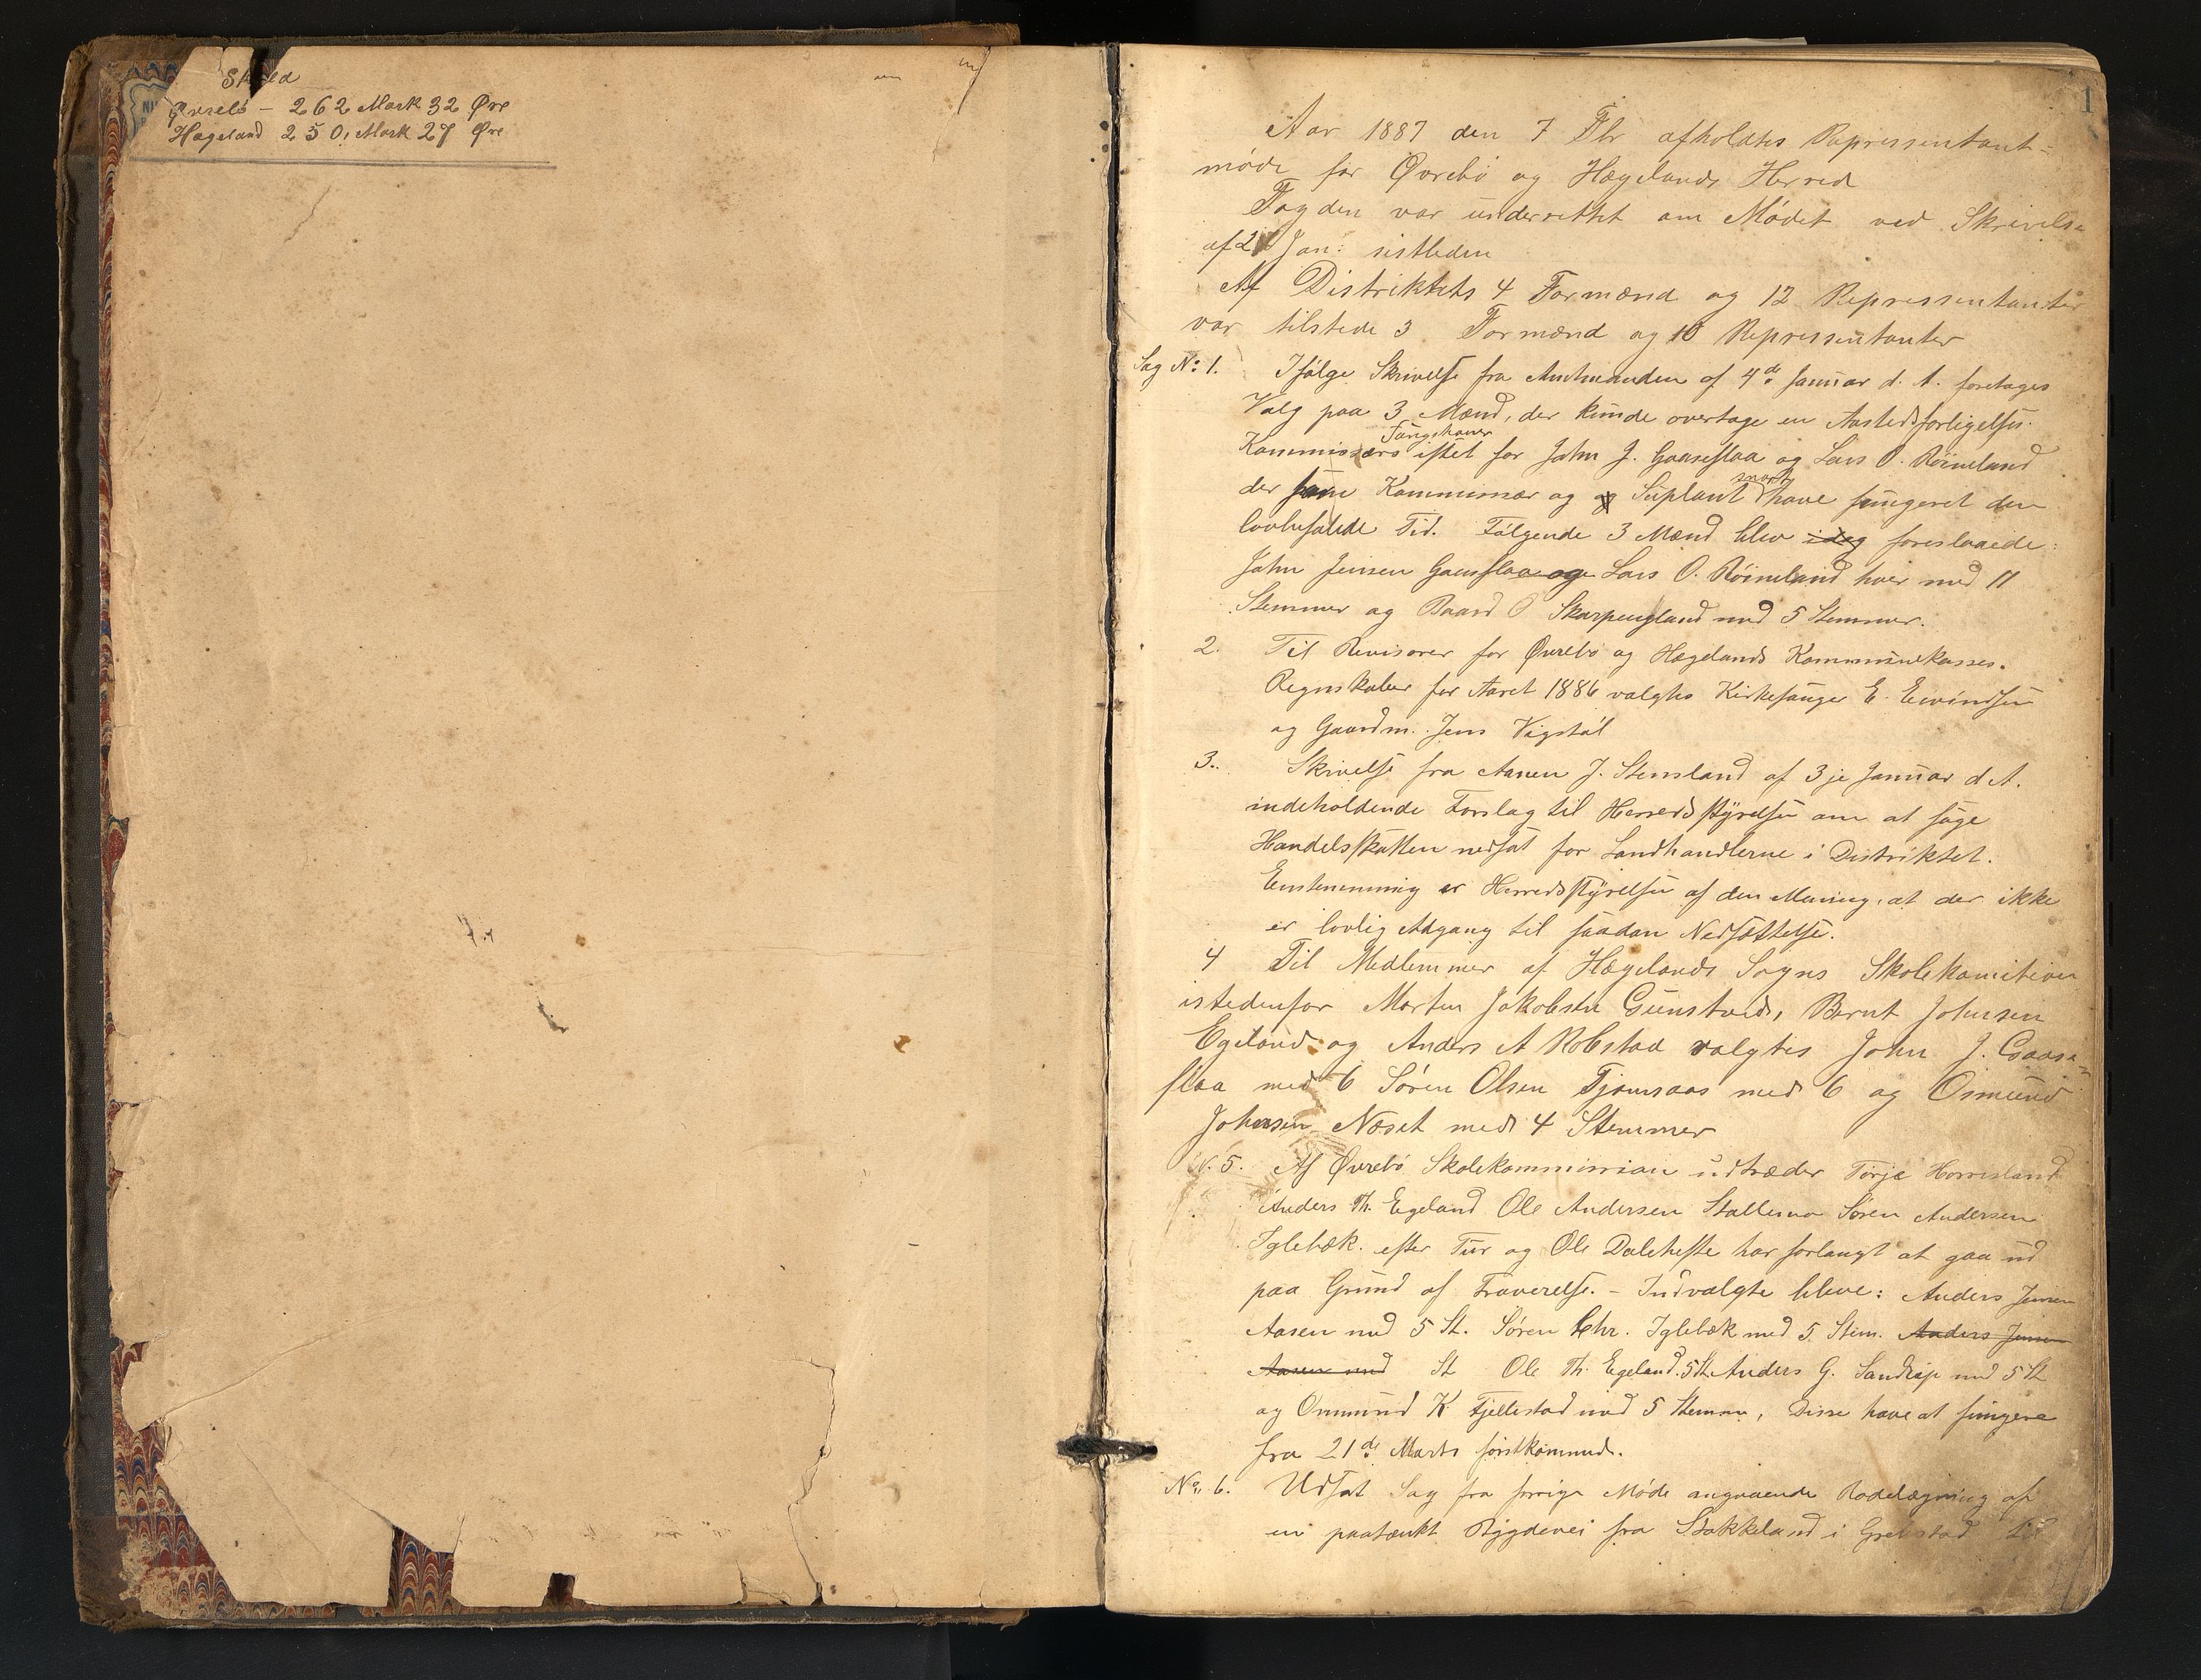 Skyld
Øvrebö - 262 Mark 32 Øre
Hægeland 250, Mark 27 Øre
1
Aar 1887 den 7 Fbr afholdtes Repressentant-
möde for Øvrebö og Hægelands Herred
Fogden var underrettet om Mödet ved Skrivelse
af 2 Jan: sistleden
Af Distriktets 4 Formænd og 12 Repressentanter
var tilstede 3 Formænd og 10 Repressentanter
Sag No: 1. Ifölge Skrivelse fra Amtmanden af 4de Januar d. A. foretages
Valg paa 3 Mænd, der kunde overtage en Aastedsforligelses-
Kommissærs istet for John J. Gaaseflaa og Lars O. Röineland
der som Kommissær og Suplant snart have fungeret den
lovbefalede Tid. Fölgende 3 Mænd blev idag foreslaaede:
John Jensen Gaaseflaa og Lars O. Röineland hver med 11
Stemmer og Baard O Skarpengland med 5 Stemmer.
2. Til Revisorer for Øvrebö og Hægelands Kommunekasses
Regnskaber for Aaret 1886 valgtes Kirkesanger E. Eivindsen
og Gaardm. Jens Vigstöl
3. Skrivelse fra Aanen J. Stensland af 3je Januar d A.
indeholdende Forslag til Herredsstyrelsen om at söge
Handelsskatten nedsat for Landhandlerne i Distriktet.
Enstemmig er Herredsstyrelsen af den Mening, at der ikke
er lovlig Adgang til saadan Nedsættelse.
4 Til Medlemmer af Hægelands Sogns Skolekomition
istedenfor Morten Jakobsen Gunstveds, Bernt Johnsen
Egeland og Anders A Robstad valgtes John J. Gaase-
flaa med 6 Sören Olsen Tjomsaas med 6 og Osmund
Johnsen Næset med 4 Stemmer
No. 5. Af Øvrebö Skolekommission udtræder Terje Horrisland
Anders Th. Egeland Ole Andersen Stallemo Sören Andersen
Iglebæk. efter Tur og Ole Dalehefte har forlangt at gaa ud
paa Grund af Fraverelse. - Indvalgte bleve: Anders Jensen
Aasen med 5 St. Sören Chr. Iglebæk med 5. Stem. Anders Jensen
Aasen med St Ole Th. Egeland. 5 St. Anders G. Sandrip med 5 St
og Ommund K Fjellestad med 5 Stemmer, Disse have at fungere
fra 21de Marts förstkommende.
No. 6. Udsat Sag fra forrige Möde angaaende Rodelægning af
en paatænkt Bygdevei fra Stokkeland i Grebstad til